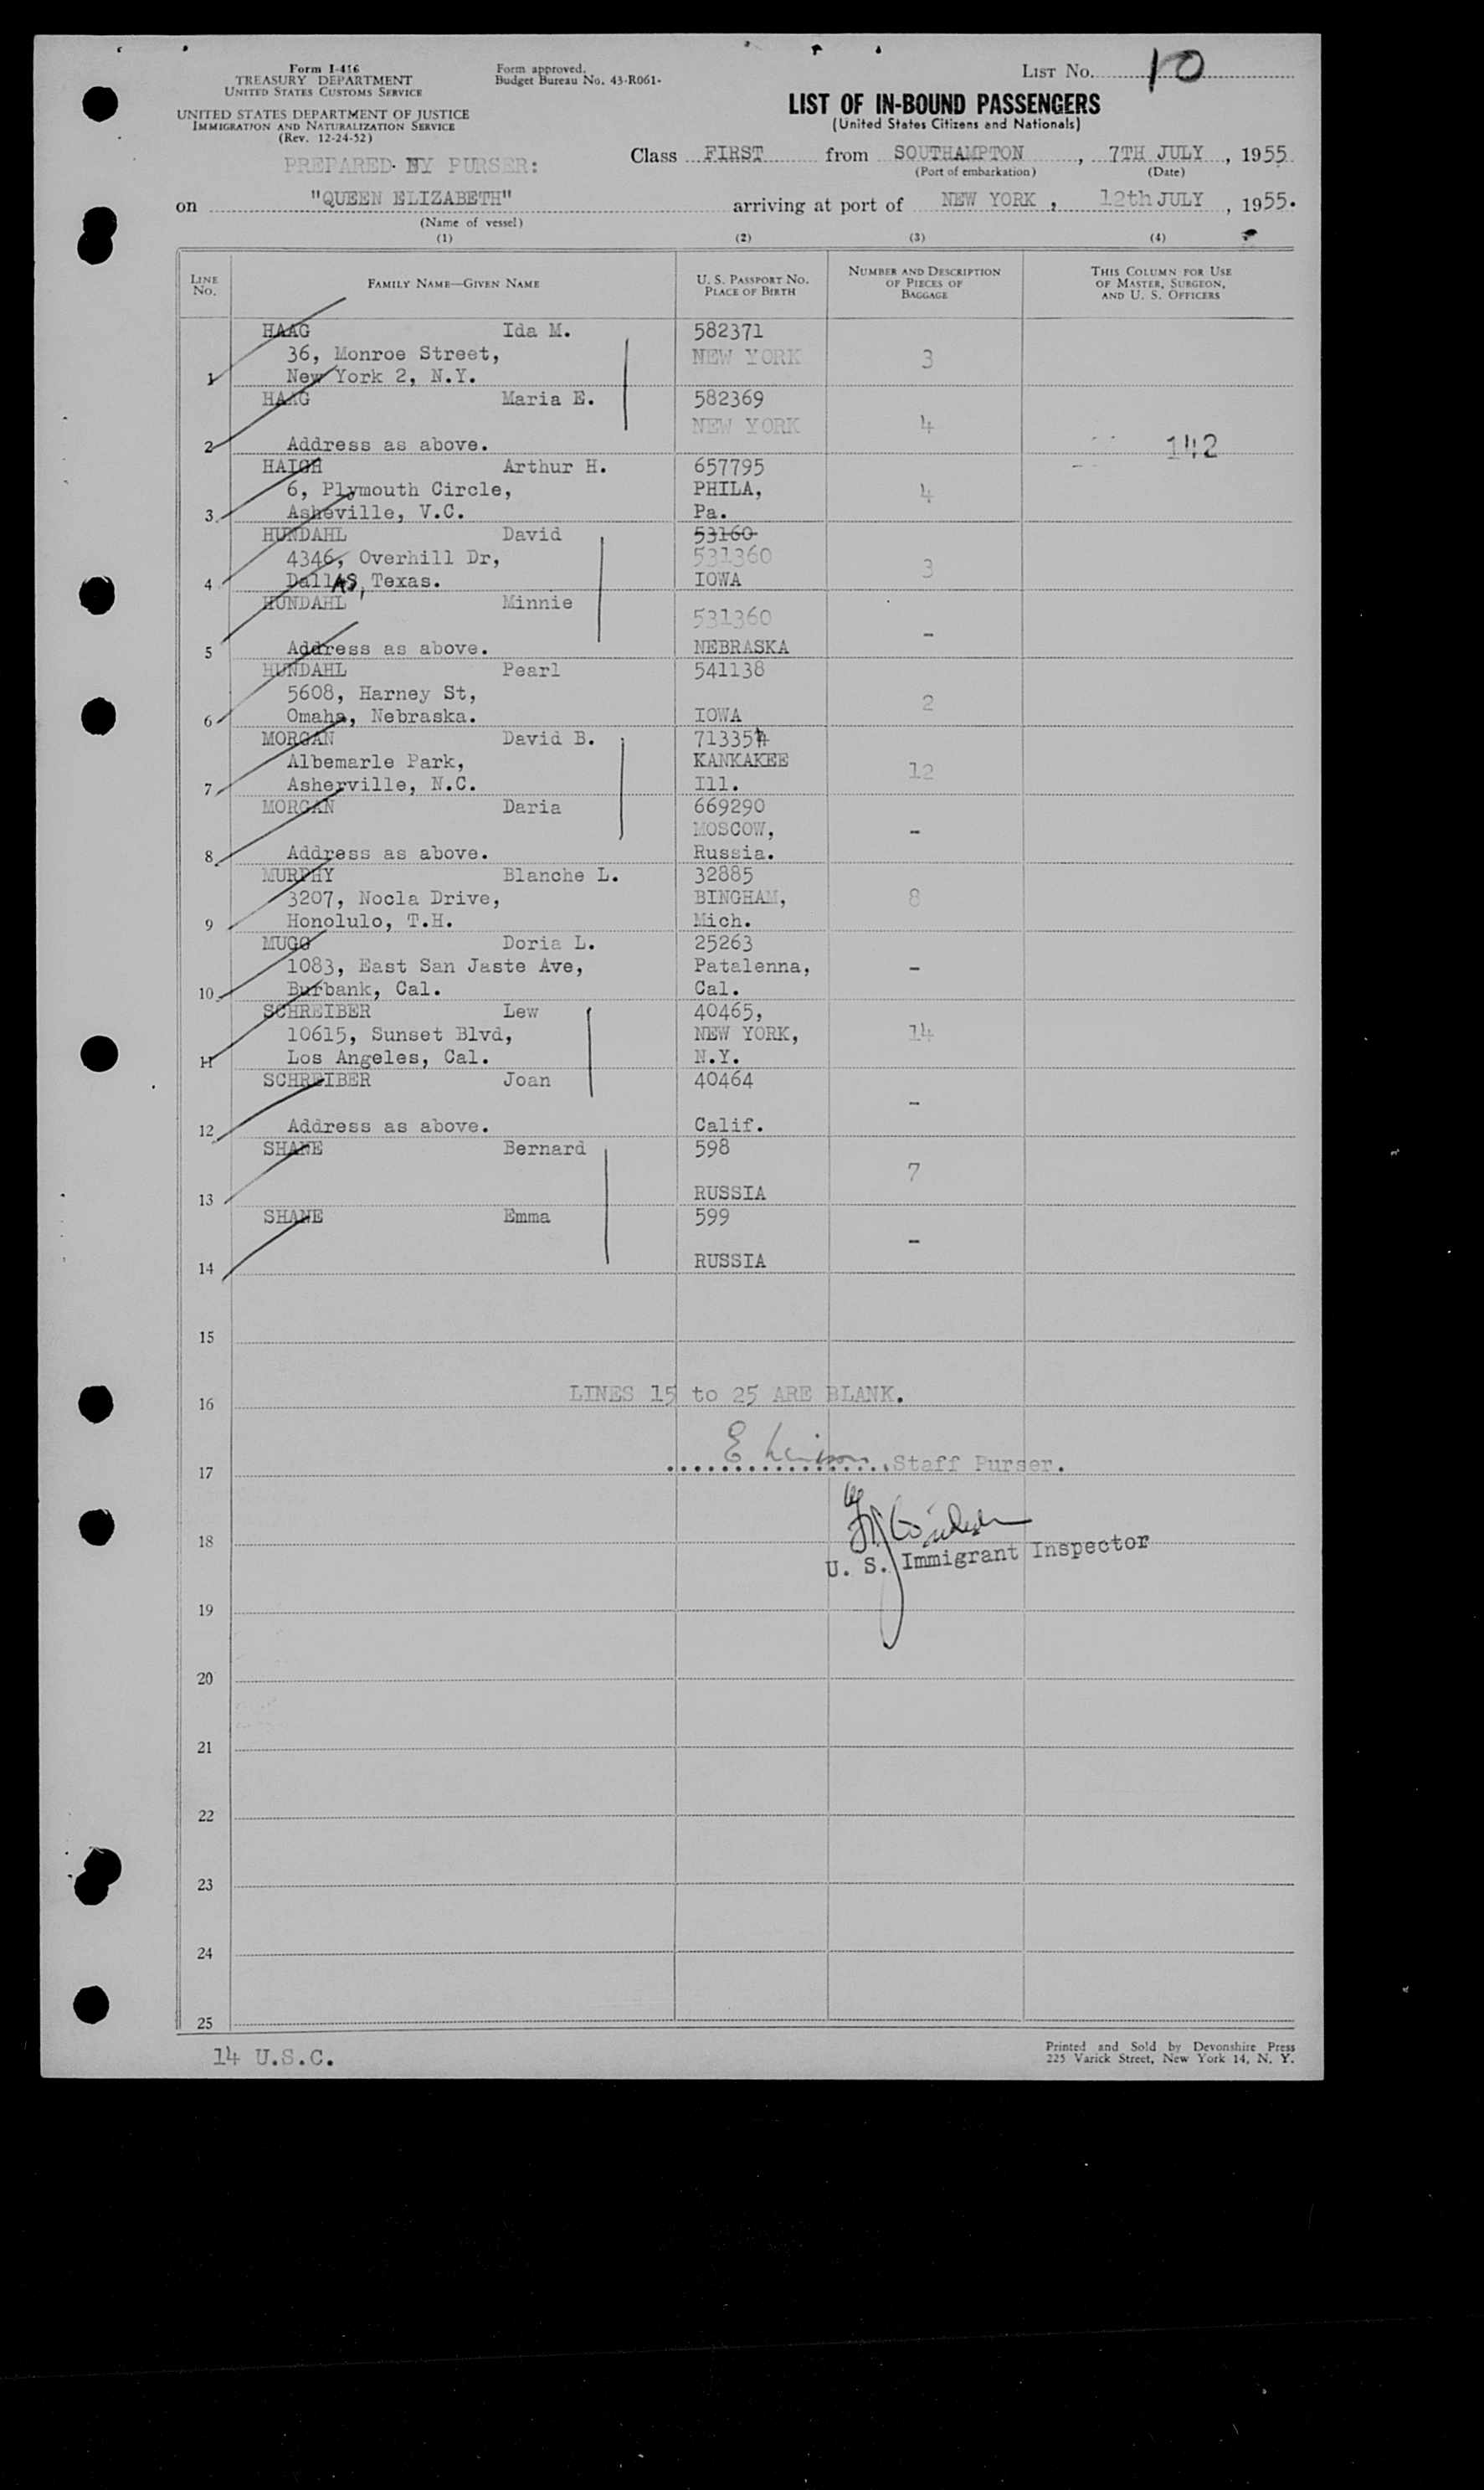 Form I-416
TREASURY DEPARTMENT
UNITED STATES CUSTOMS SERVICE
UNITED STATES DEPARTMENT OF JUSTICE
IMMIGRATION AND NATURALIZATION SERVICE
(Rev. 12-24-52)
Form approved.
Budget Bureau No. 43-R061-
LIST NO. 10
LIST OF IN-BOUND PASSENGERS
(United States Citizens and Nationals)
PREPARED BY PURSER:
Class FIRST from SOUTHAMPTON, 7TH JULY, 1955
(Port of embarkation) (Date)
on "QUEEN ELIZABETH" arriving at port of NEW YORK, 12th JULY, 1955.
(Name of vessel)
(1) (2) (3) (4)
LINE NO.
FAMILY NAME—GIVEN NAME
U. S. PASSPORT NO.
PLACE OF BIRTH
NUMBER AND DESCRIPTION
OF PIECES OF
BAGGAGE
THIS COLUMN FOR USE
OF MASTER, SURGEON,
AND U. S. OFFICERS
HAAG Ida M. 582371
36, Monroe Street, NEW YORK 3
1 New York 2, N.Y.
HAAG Maria E. 582369
NEW YORK 4
2 Address as above. 142
HAIGH Arthur H. 657795
6, Plymouth Circle, PHILA, 4
3 Asheville, V.C. Pa.
HUNDAHL David 53160
4346, Overhill Dr, 531360 3
4 DallAS, Texas. IOWA
HUNDAHL Minnie
531360 -
5 Address as above. NEBRASKA
HUNDAHL Pearl 541138
5608, Harney St, 2
6 Omaha, Nebraska. IOWA
MORGAN David B. 71335
Albemarle Park, KANKAKEE 12
7 Asherville, N.C. Ill.
MORGAN Daria 669290
MOSCOW, -
8 Address as above. Russia.
MURPHY Blanche L. 32885
3207, Nocla Drive, BINGHAM, 8
9 Honolulo, T.H. Mich.
MUGG Doria L. 25263
1083, East San Jaste Ave, Patalenna, -
10 Burbank, Cal. Cal.
SCHREIBER Lew 40465,
10615, Sunset Blvd, NEW YORK, 14
11 Los Angeles, Cal. N.Y.
SCHREIBER Joan 40464
-
12 Address as above. Calif.
SHANE Bernard 598
7
13 RUSSIA
SHANE Emma 599
-
14 RUSSIA
15
LINES 15 to 25 ARE BLANK.
16
17 Staff Purser.
18
U. S. Immigrant Inspector
19
20
21
22
23
24
25
14 U.S.C.
Printed and Sold by Devonshire Press
225 Varick Street, New York 14, N. Y.